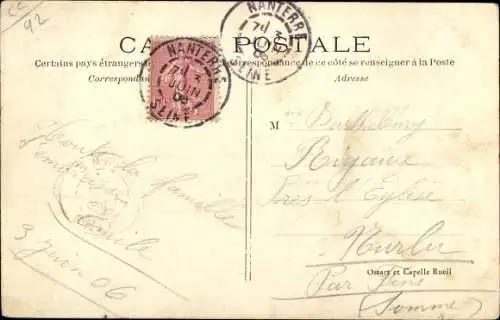 CC
92
CA POSTALE
Certains pays étrangers correspondance de ce côté se renseigner à la Poste
Correspondan
Adresse
NANTERRE
JUIN
SEINE
NANTERRE
SEINE
Toute la famille
Emile
3 Juin 06
M
Rigaux
Près l'Eglise
Nurlu
Par Fins
(Somme)
Omart et Capelle Rueil